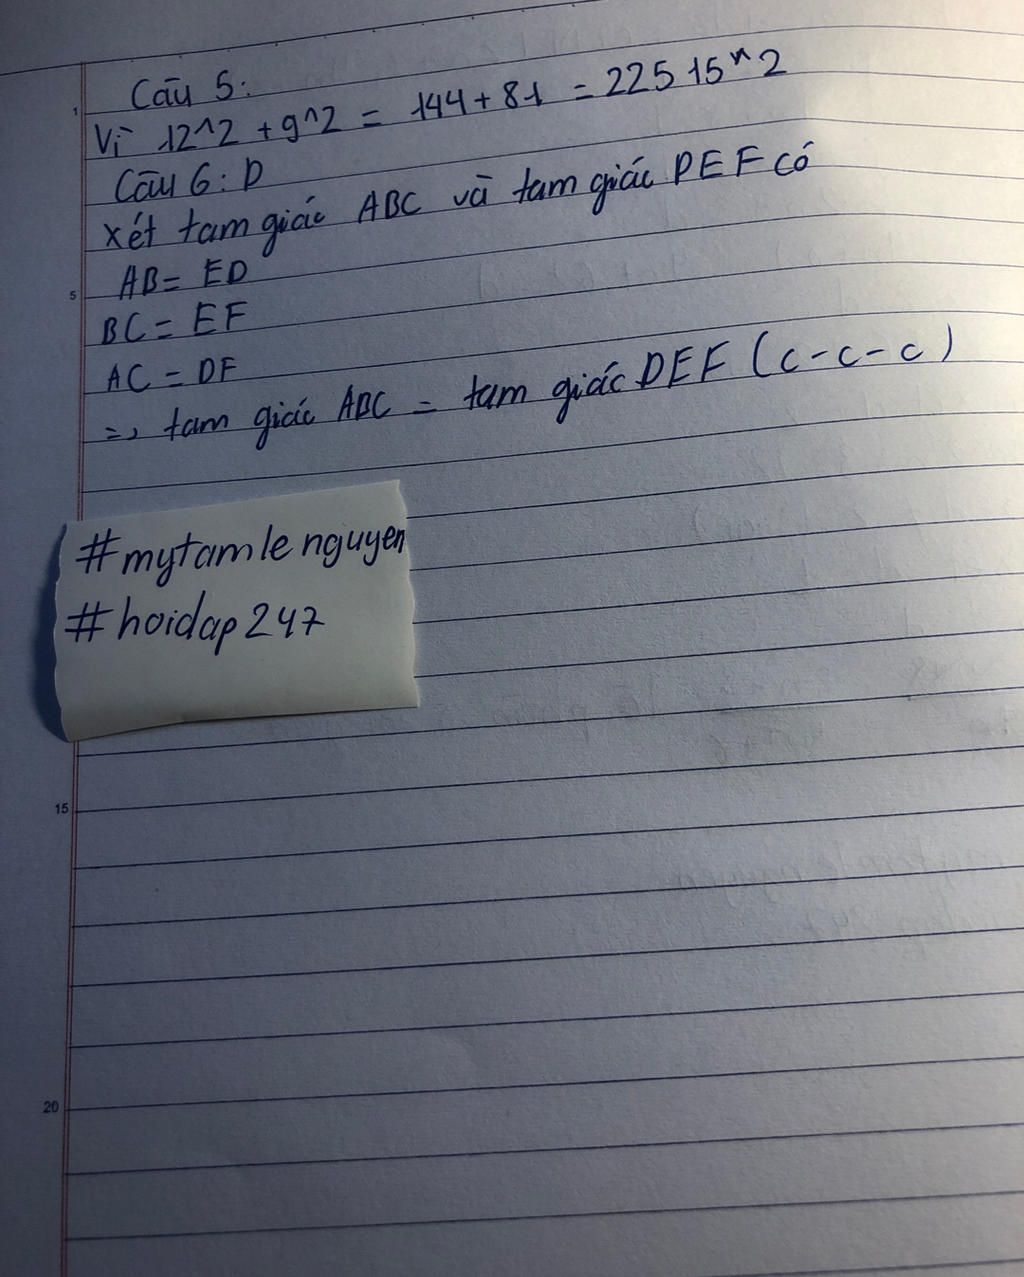 Câu 5:
Vì 12^2 + 9^2 = 144 + 81 = 225 15^2
Câu 6: D
xét tam giác ABC và tam giác DEF có
AB = ED
BC = EF
AC = DF
=> tam giác ABC = tam giác DEF (c-c-c)
#mytamlenguyen
#hoidap247
1
5
15
20